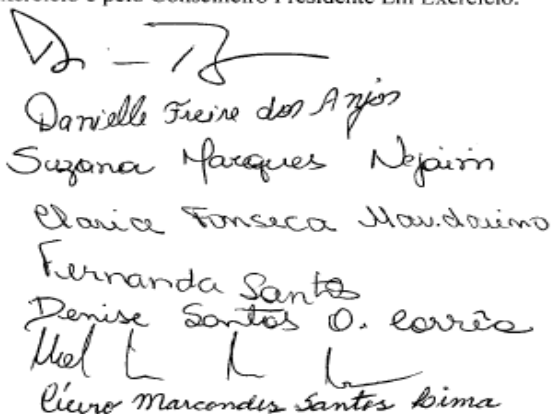 pelo Conselheiro Presidente Em Exercício.
Danielle Freire dos Anjos
Suzana Marques Nejaim
Clarice Fonseca
Fernanda Santos
Denise Santos O. Corrêa
Cícero Marcondes Santos Lima